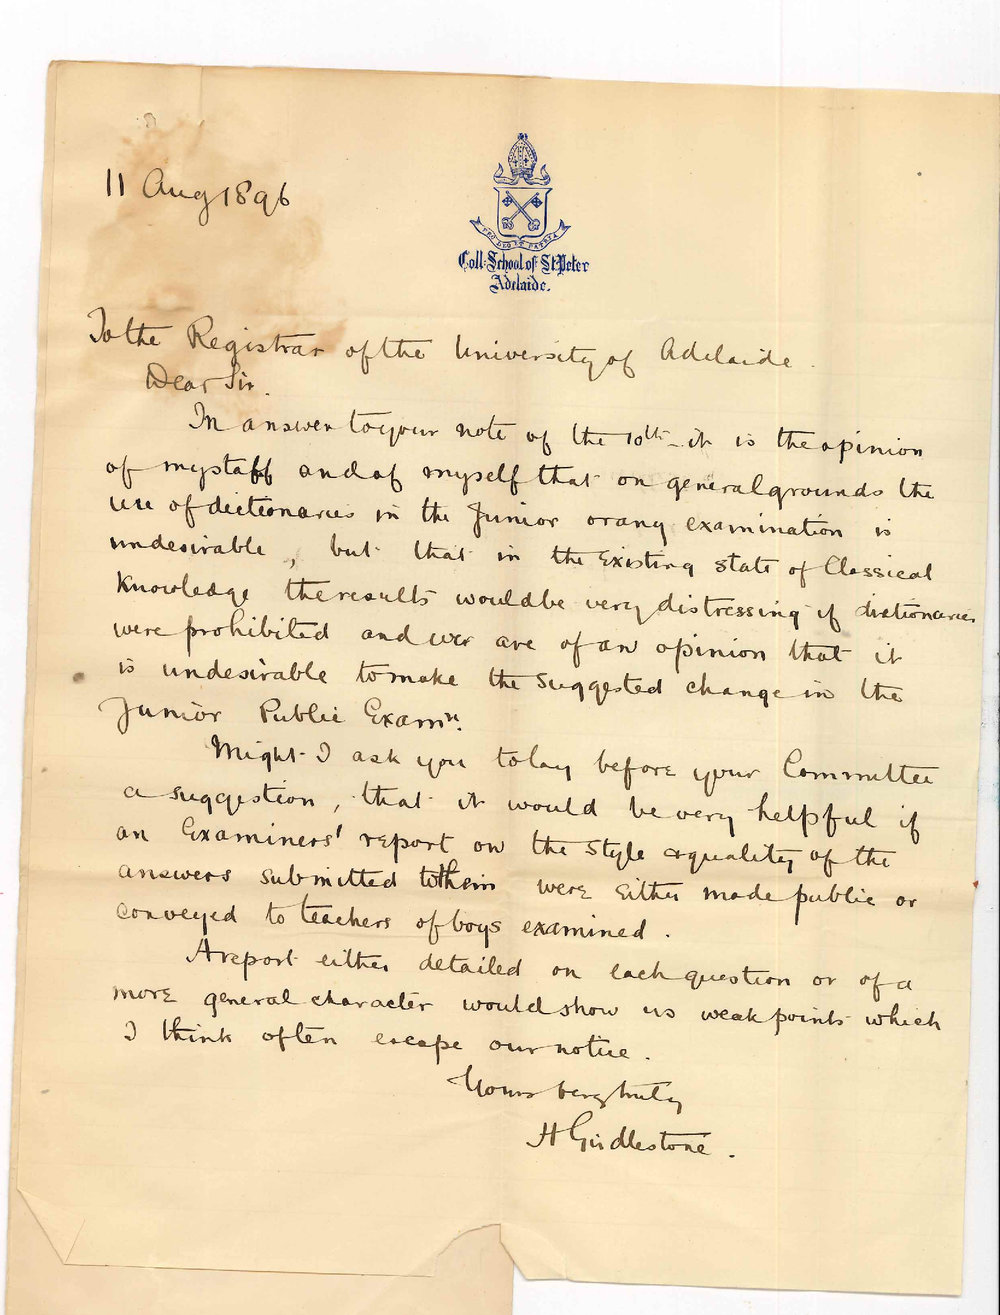 11 Aug 1896
PRO DEO ET PATRIA
Coll: School of St Peter
Adelaide.
To the Registrar of the University of Adelaide.
Dear Sir.
In answer to your note of the 10th it is the opinion
of my staff and of myself that on general grounds the
use of dictionaries in the Junior or any examination is
undesirable, but that in the existing state of Classical
Knowledge the results would be very distressing if dictionaries
were prohibited and we are of an opinion that it
is undesirable to make the suggested change in the
Junior Public Examn.
Might I ask you to lay before your Committee
a suggestion, that it would be very helpful if
an Examiners' report on the style & quality of the
answers submitted to them were either made public or
conveyed to teachers of boys examined.
A report either detailed on each question or of a
more general character would show us weak points which
I think often escape our notice.
Yours very truly
H Girdlestone.